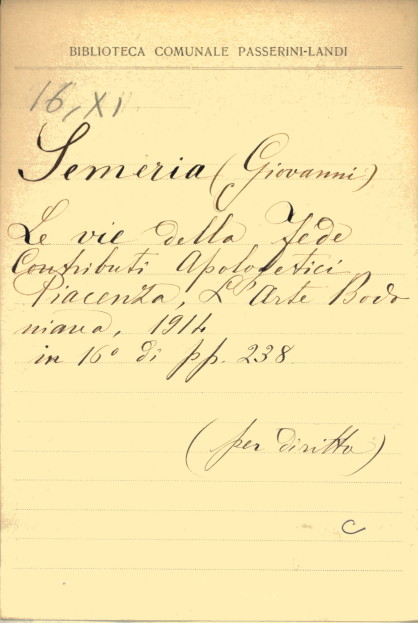 BIBLIOTECA COMUNALE PASSERINI-LANDI
16, XI
Semeria (Giovanni)
Le vie della Fede
Contributi Apologetici
Piacenza, L'Arte Bodo
niana, 1914
in 16º di pp. 238
(per diritto)
C